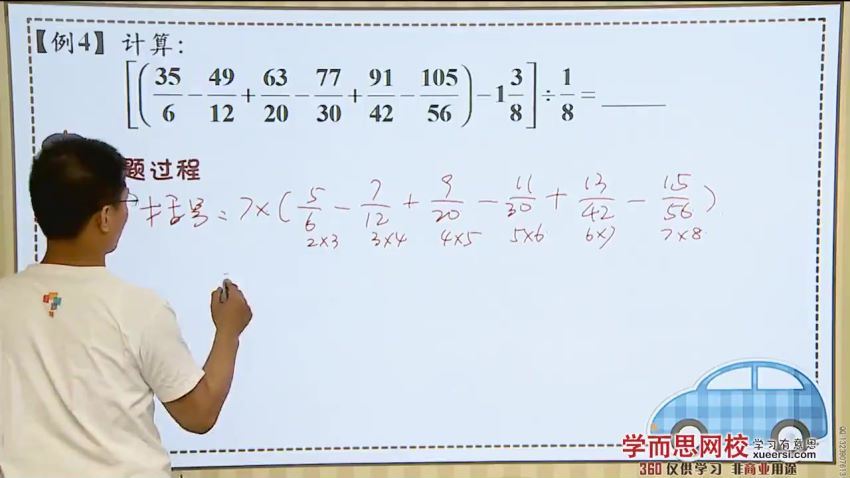 【例4】计算：
[(35/6 − 49/12 + 63/20 − 77/30 + 91/42 − 105/56) − 1 3/8] ÷ 1/8 = ____
题过程
括号 = 7×( 5/6 − 7/12 + 9/20 − 11/30 + 13/42 − 15/56 )
2×3 3×4 4×5 5×6 6×7 7×8
学而思网校 学习有意思
xueersi.com
360 仅供学习 非商业用途